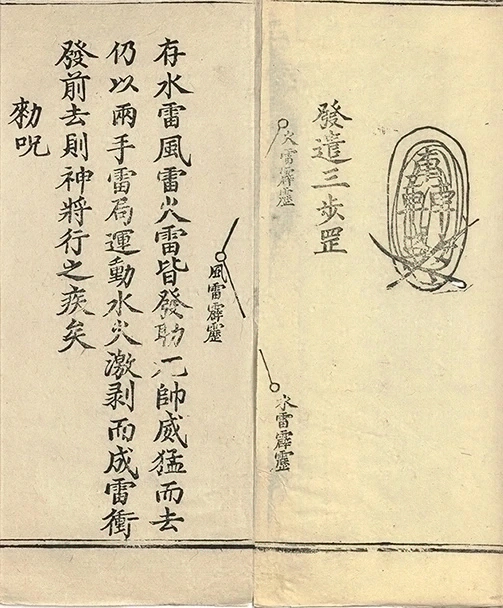 發遣三步罡
火雷霹靂
水雷霹靂
風雷霹靂
存水雷風雷火雷皆發助元帥威猛而去
仍以兩手雷局運動水火激剥而成雷衝
發前去則神將行之疾矣
勑呪